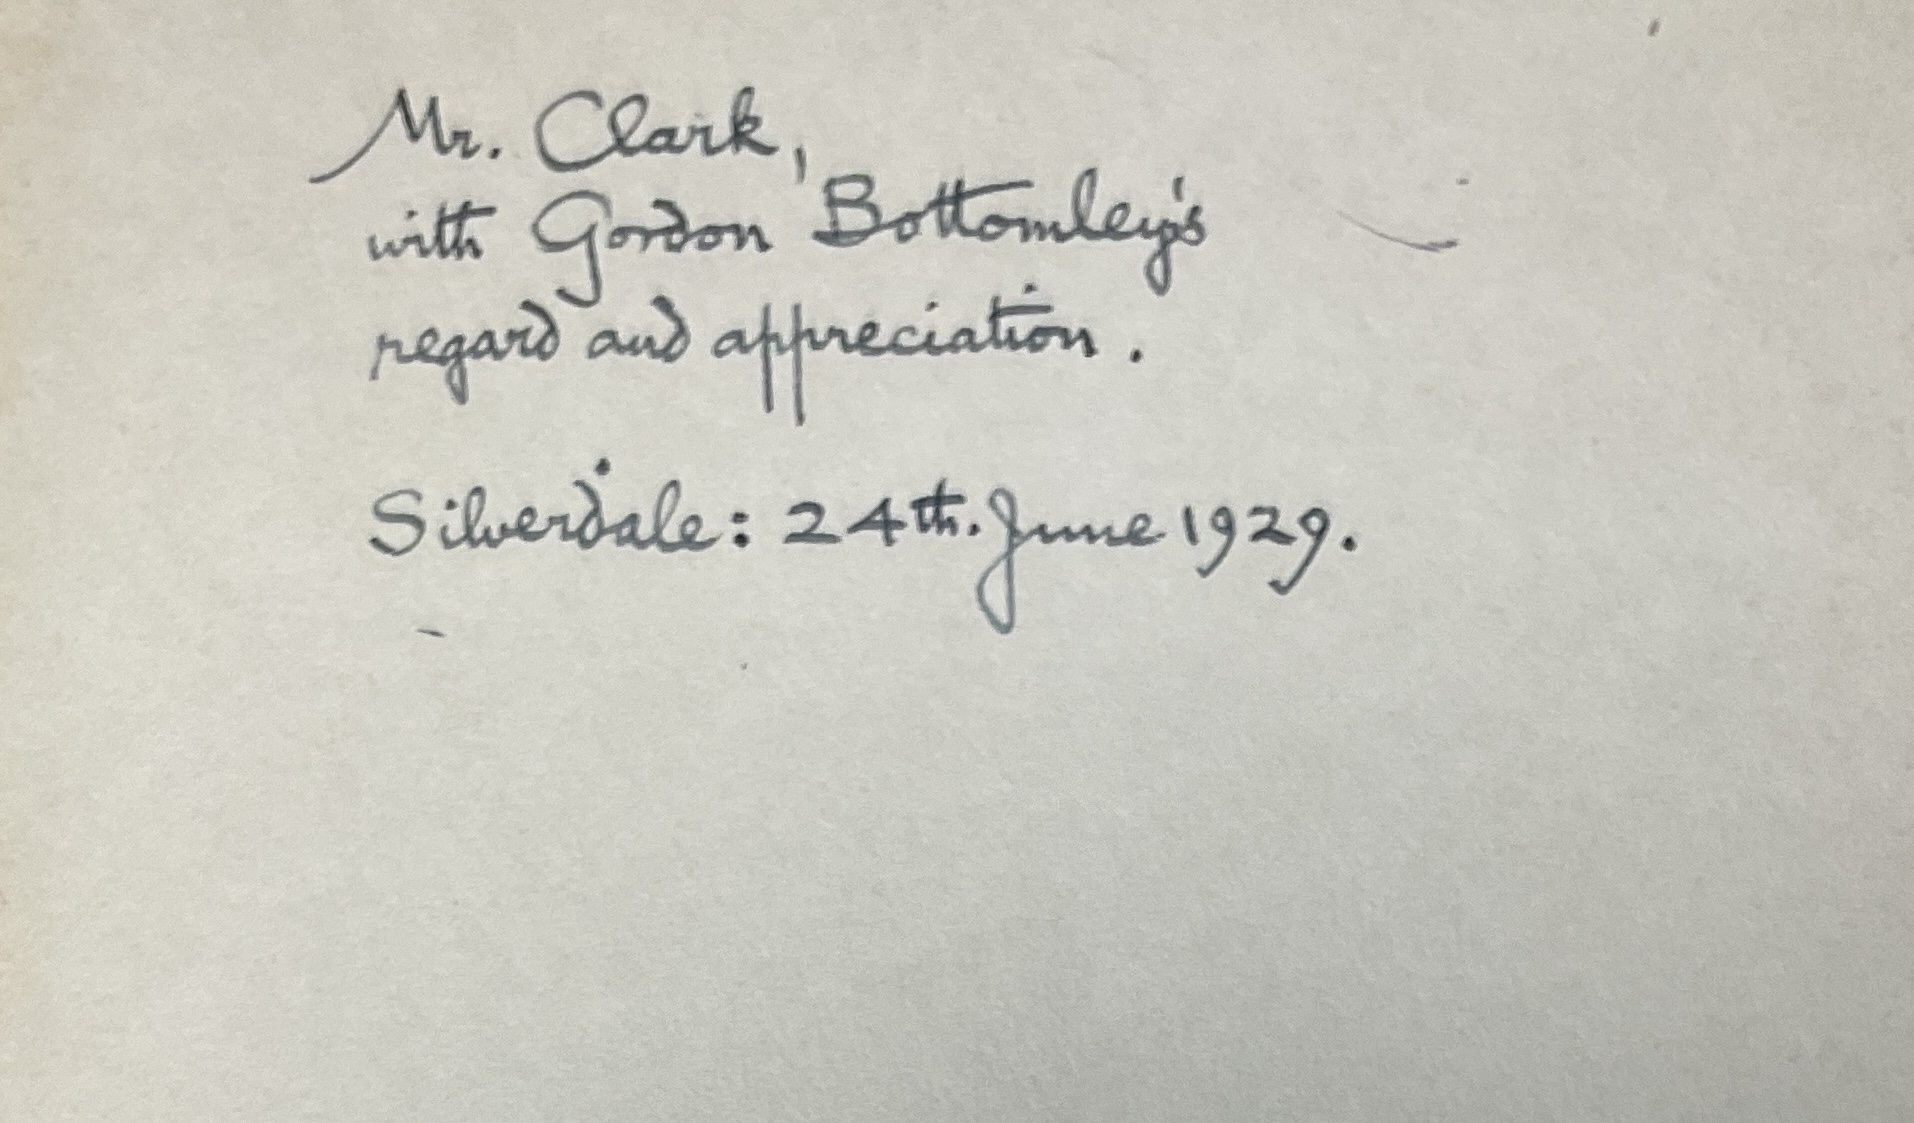 Mr. Clark,
with Gordon Bottomley's
regard and appreciation.
Silverdale: 24th. June 1929.